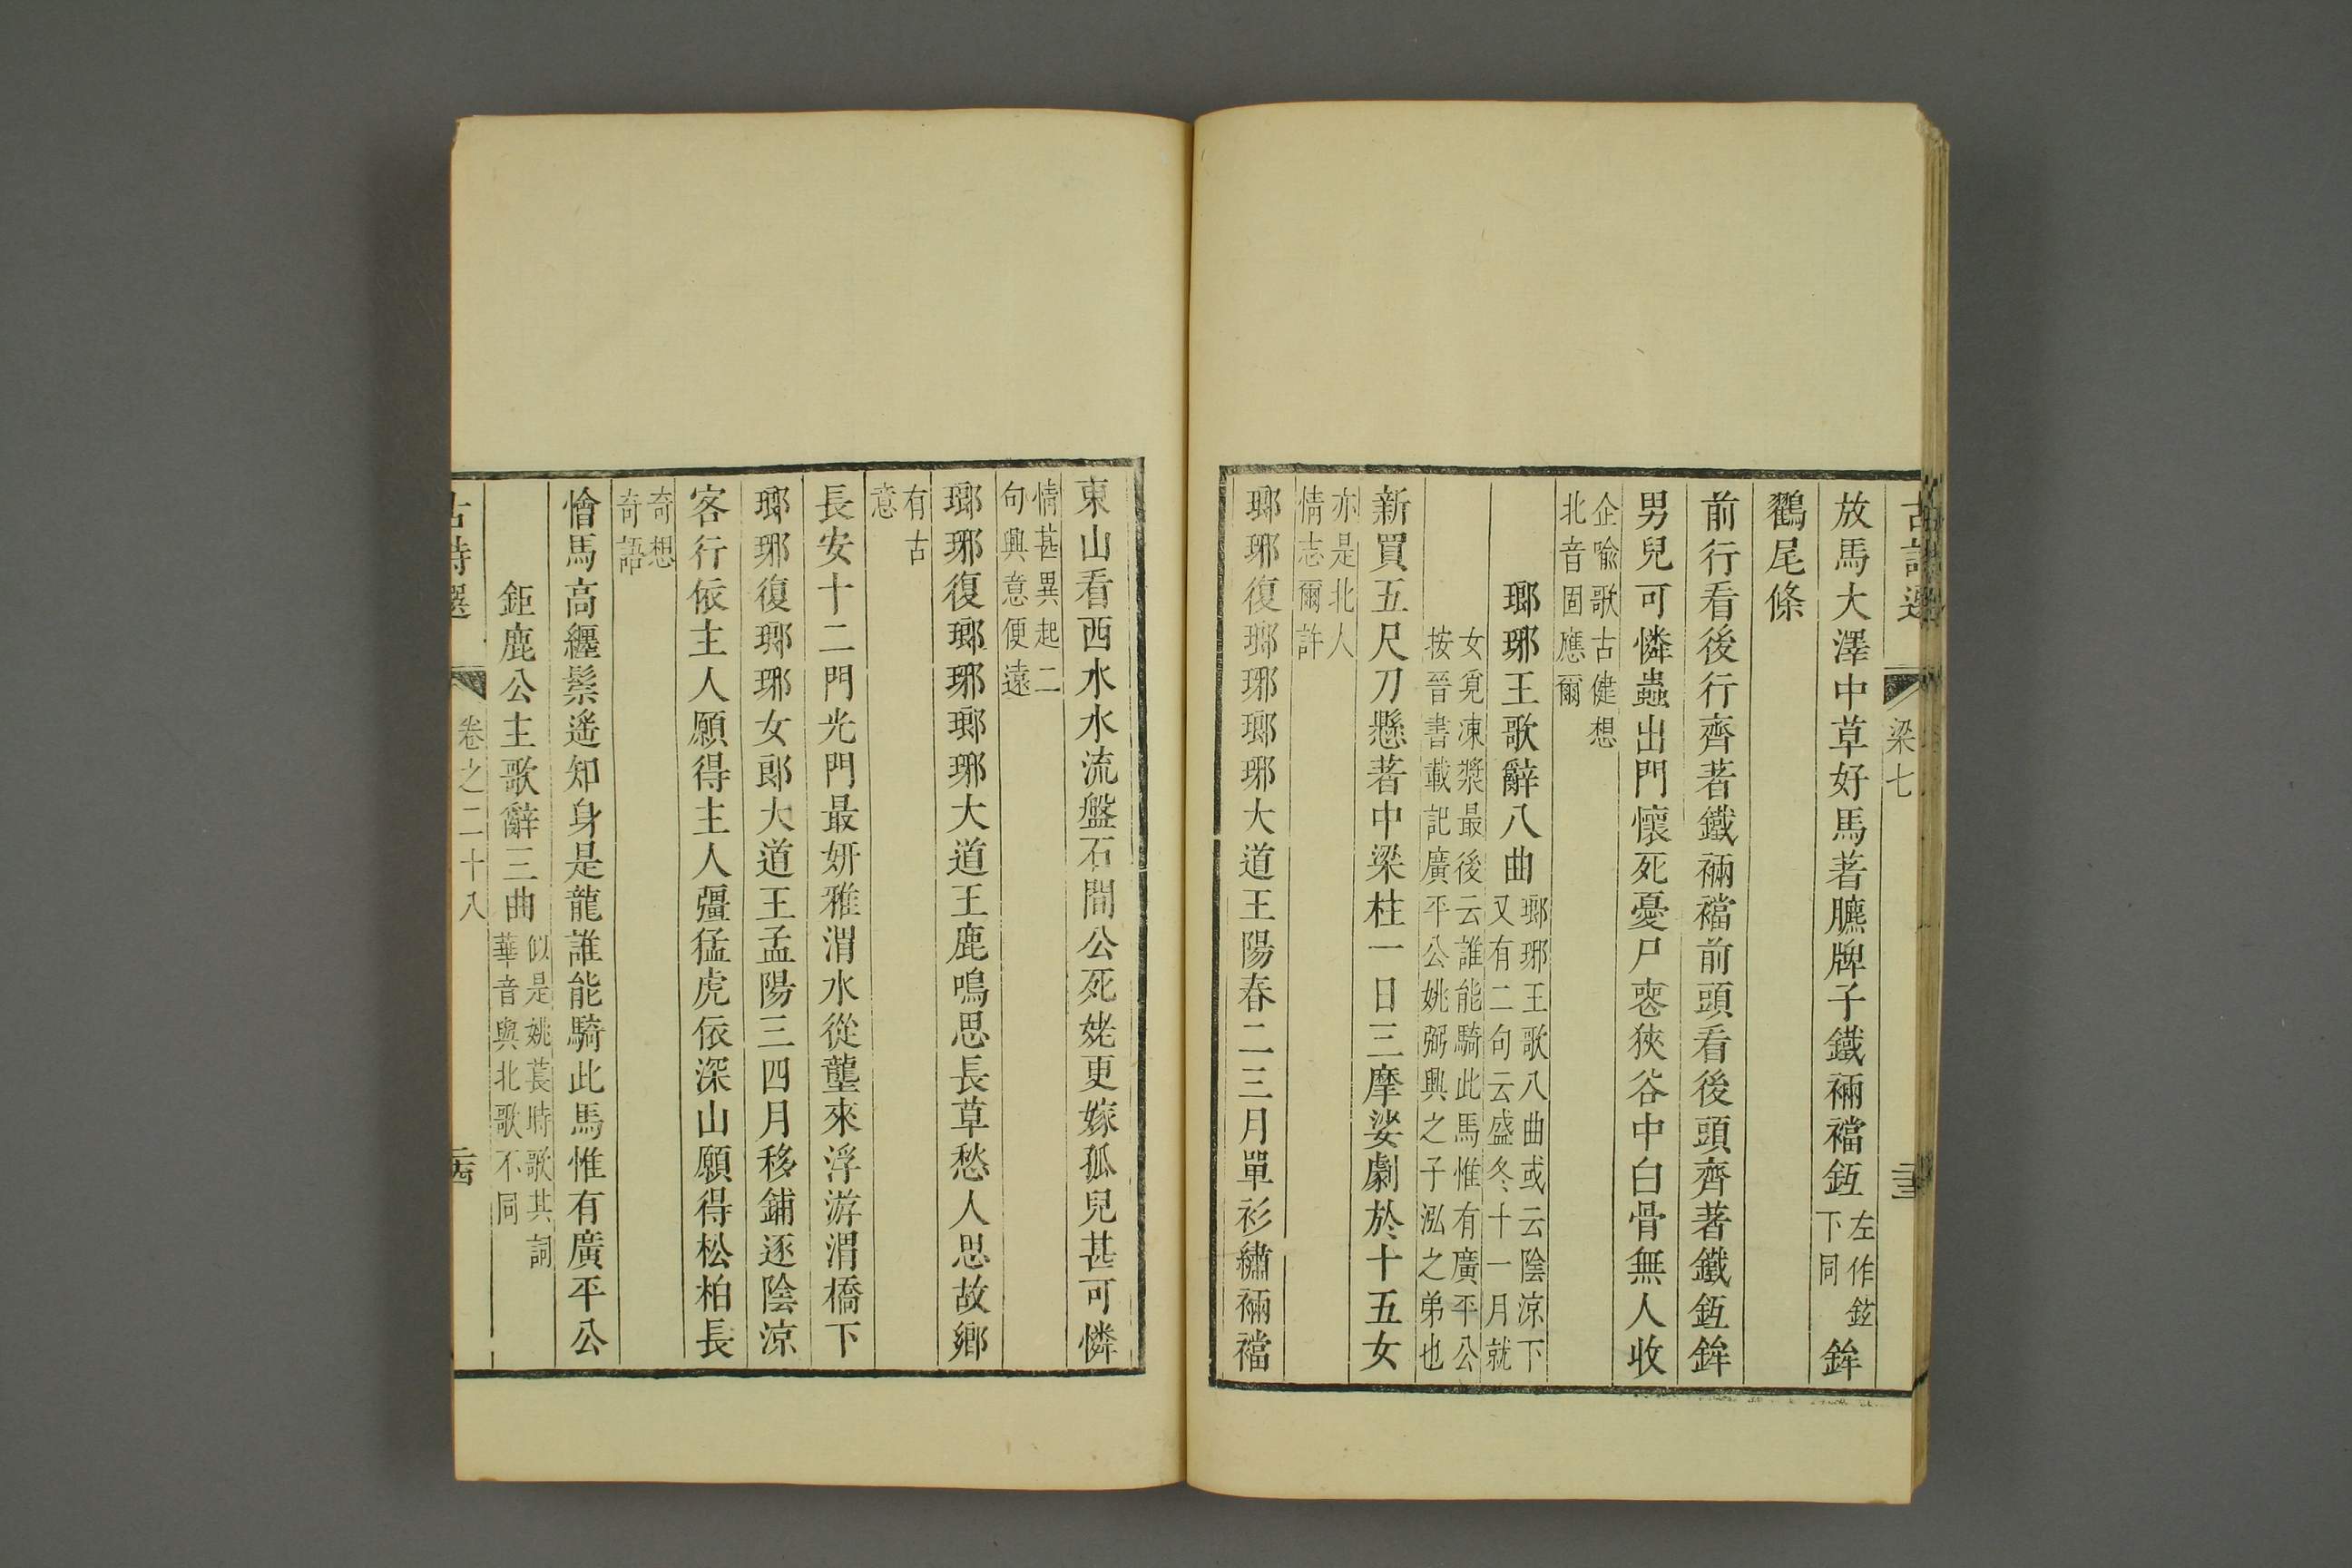 古詩選 梁七
放馬大澤中草好馬著臕牌子鐵裲襠鉅左作鉉下同鉾
鸛尾條
前行看後行齊著鐵裲襠前頭看後頭齊著鐵鉅鉾
男兒可憐蟲出門懷死憂尸喪狹谷中白骨無人收
企喻歌古健想
北音固應爾
瑯琊王歌辭八曲瑯琊王歌八曲或云陰涼下
又有二句云盛冬十一月就
女覓凍漿最後云誰能騎此馬惟有廣平公
按晉書載記廣平公姚弼興之子泓之弟也
新買五尺刀懸著中梁柱一日三摩娑劇於十五女
亦是北人
情志爾許
瑯琊復瑯琊瑯琊大道王陽春二三月單衫繡裲襠
東山看西水水流盤石間公死姥更嫁孤兒甚可憐
情甚異起二
句興意便遠
瑯琊復瑯琊瑯琊大道王鹿鳴思長草愁人思故鄉
有古
意
長安十二門光門最妍雅渭水從壟來浮游渭橋下
瑯琊復瑯琊女郎大道王孟陽三四月移鋪逐陰涼
客行依主人願得主人彊猛虎依深山願得松柏長
奇想
奇語
懀馬高纏鬃遙知身是龍誰能騎此馬惟有廣平公
鉅鹿公主歌辭三曲似是姚萇時歌其詞
華音與北歌不同
古詩選 卷之二十八